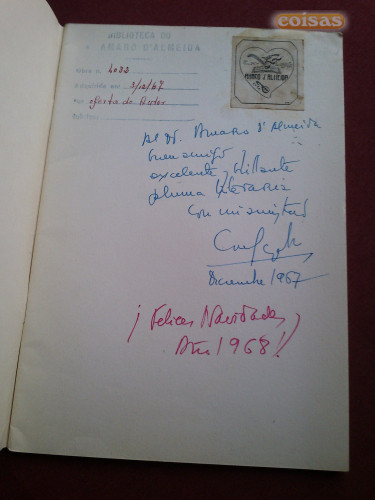 coisas
BIBLIOTECA DO
AMARO D'ALMEIDA
4033
3/12/67
oferta do Autor
AMARO J ALMEIDA
Al Dr. Amaro d'Almeida
buen amigo y
excelente y brillante
pluma literaria
Con mi amistad
Diciembre 1967
¡Felices Navidades y
Año 1968!!